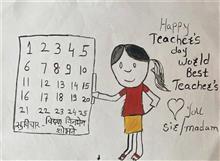 1 2 3 4 5
6 7 8 9 10
11 12 13 14 15
16 17 18 19 20
21 22 23 24 25
Happy
Teacher's
day
World
Best
Teacher's
You
Sir/madam